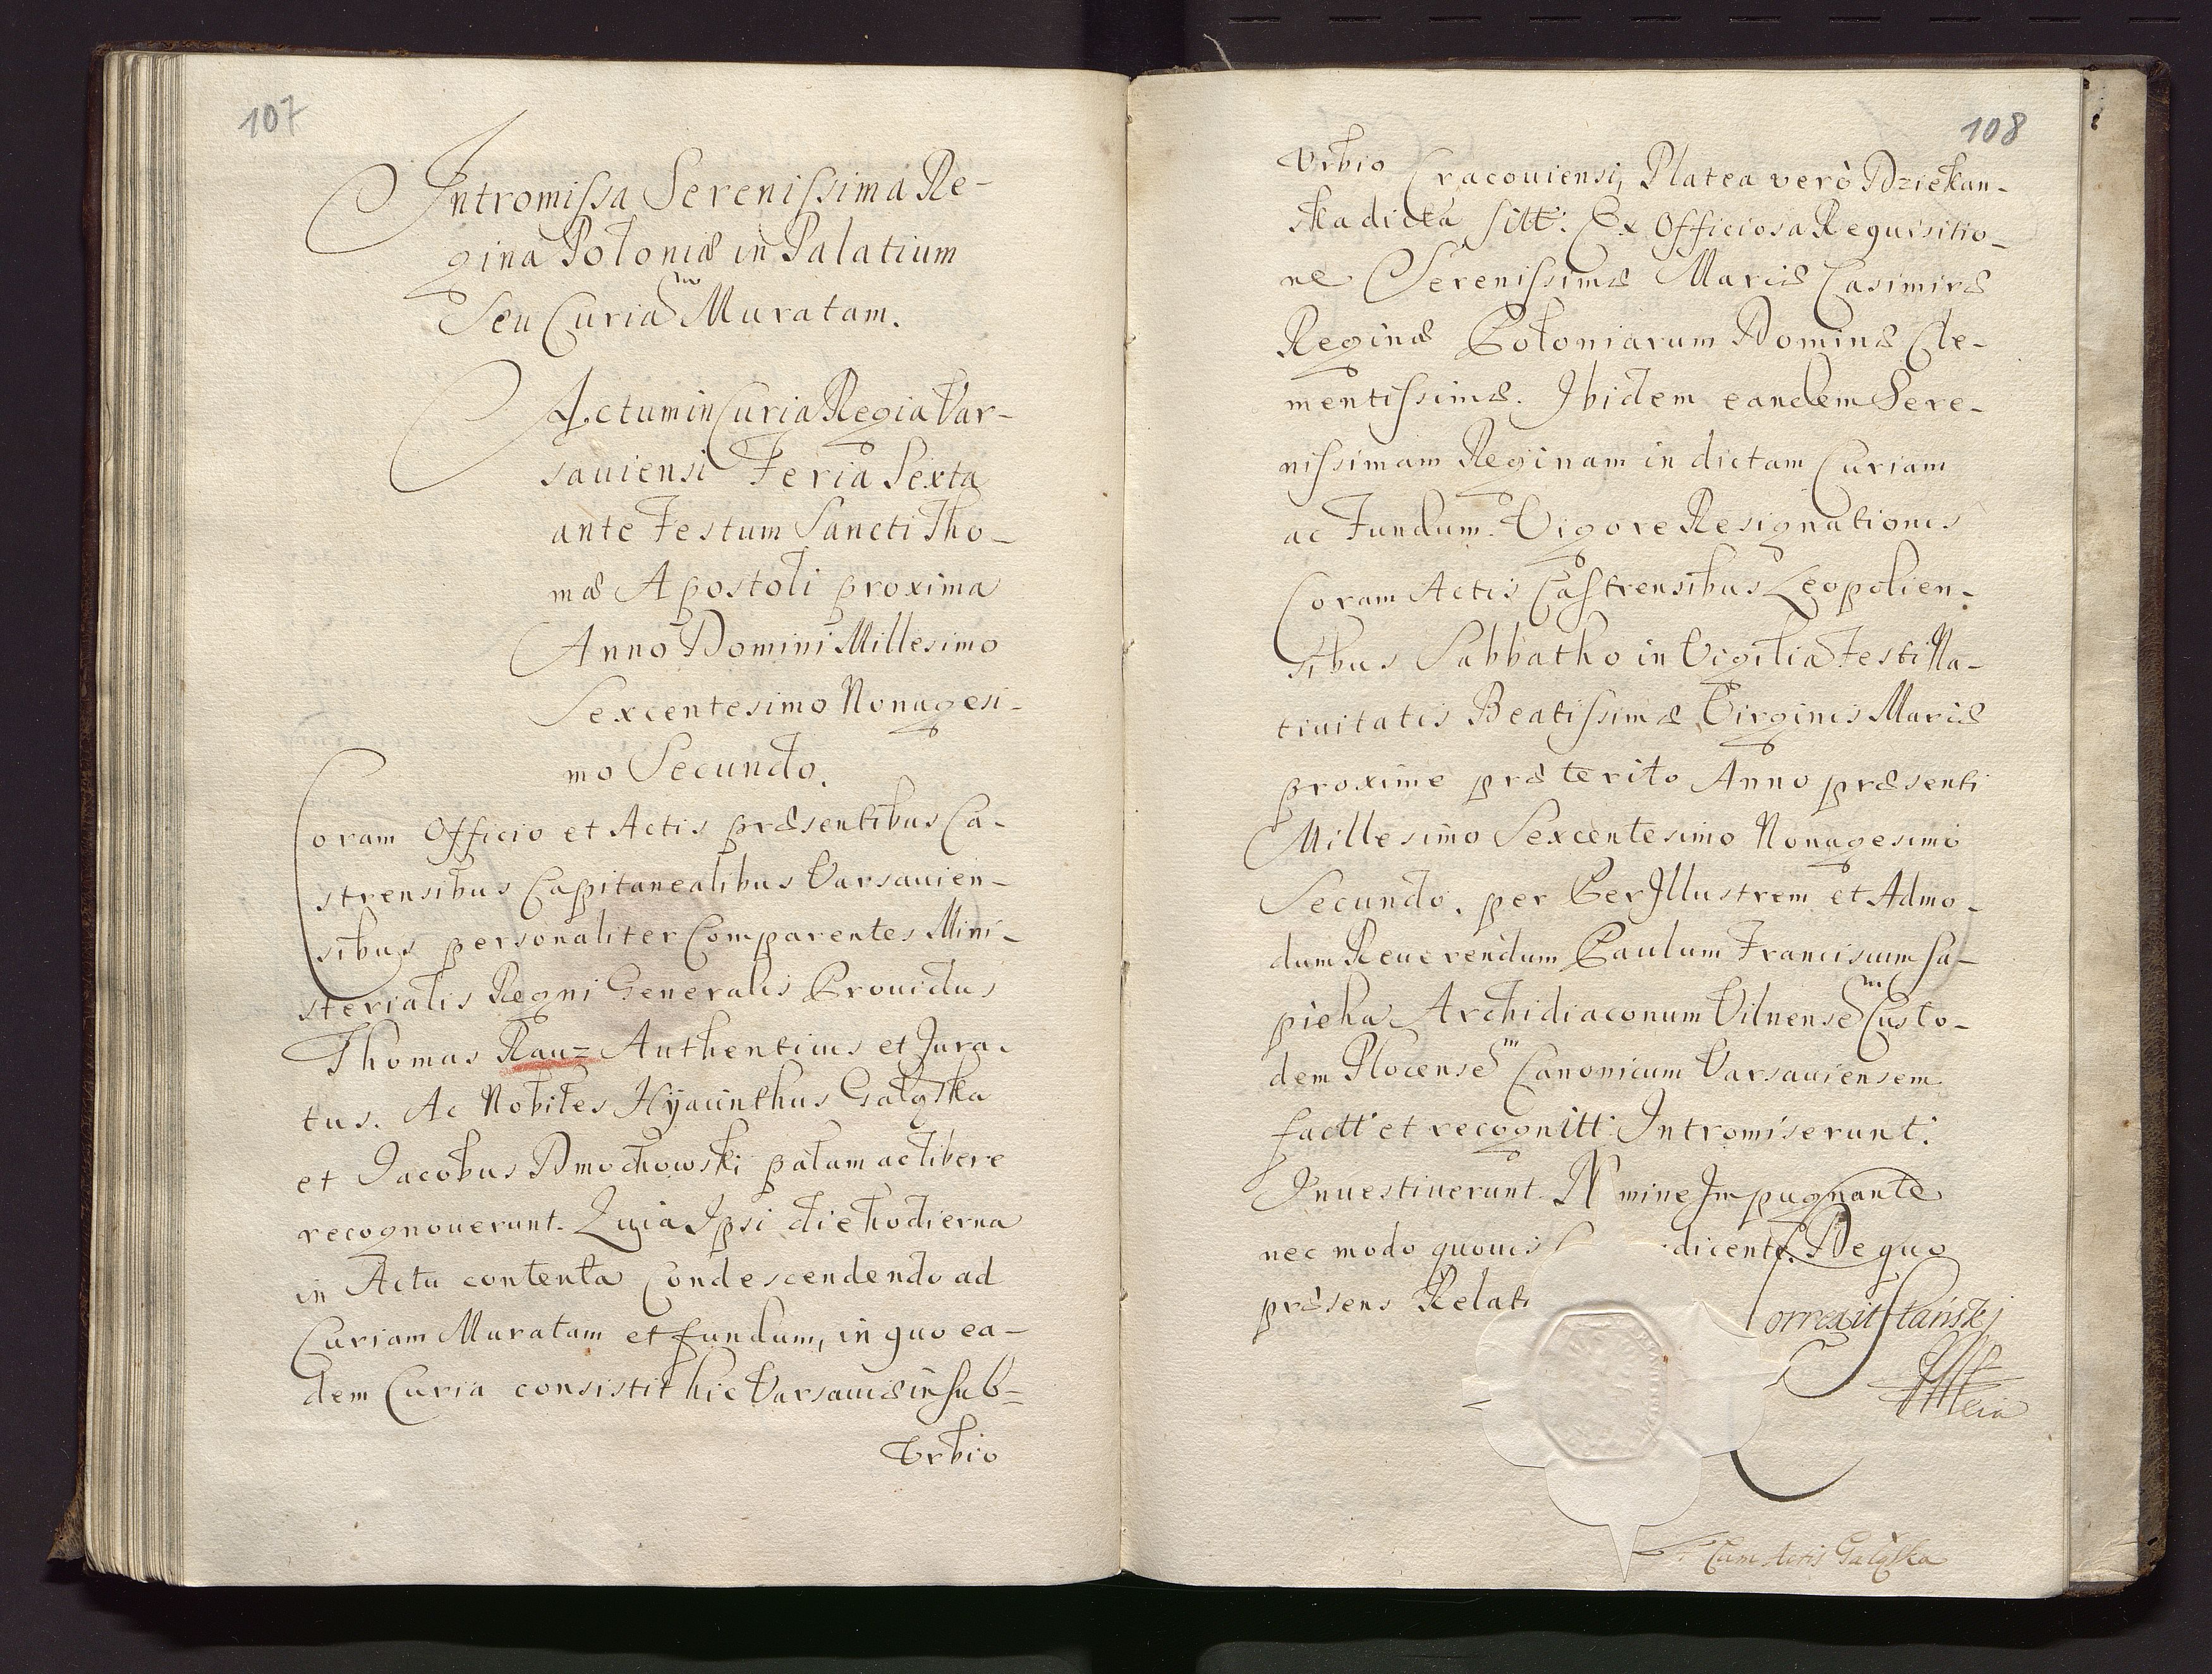 107
Intromissa Serenissima Re-
gina Poloniæ in Palatium
Seu Curiam Muratam.
Actum in Curia Regia Var-
sauiensi Feria Sexta
ante Festum Sancti Tho-
mæ Apostoli proxima
Anno Domini Millesimo
Sexcentesimo Nonagesi-
mo Secundo.
Coram Officio et Actis præsentibus Ca-
strensibus Capitanealibus Varsauien-
sibus personaliter Comparentes Mini-
sterialis Regni Generalis Prouidus
Thomas Rau= Authenticus et Jura-
tus. Ac Nobiles Hyacinthus Gałąska
et Jacobus Dmochowski palam ac libere
recognouerunt. Quia Ipsi die hodierna
in Actu contenta Condescendendo ad
Curiam Muratam et fundum, in quo ea-
dem Curia consistit hic Varsauiæ in sub=
Vrbio
108
Vrbio Cracouiensi, Platea verò Dziekan-
ska dicta sitt: Ex Officiosa Requisitio-
ne Serenissimæ Mariæ Casimiræ
Reginæ Poloniarum Dominæ Cle-
mentissimæ. Ibidem eandem Sere-
nissimam Reginam in dictam Curiam
ac Fundum. Vigore Resignationis
Coram Actis Castrensibus Leopolien-
sibus Sabbatho in Vigilia Festi Na-
tiuitatis Beatissimæ Virginis Mariæ
proxime præterito Anno præsenti
Millesimo Sexcentesimo Nonagesimo
Secundo. per Perillustrem et Admo-
dum Reuerendum Paulum Franciscum Sa-
pieha Archidiaconum Vilnensem Custo-
dem Plocensem Canonicum Varsauiensem
factt: et recognitt: Intromiserunt.
Inuestiuerunt. Nemine Impugnante
nec modo quouis dicente. De quo
præsens Relati
Correxit
Cum Actis Gałąska